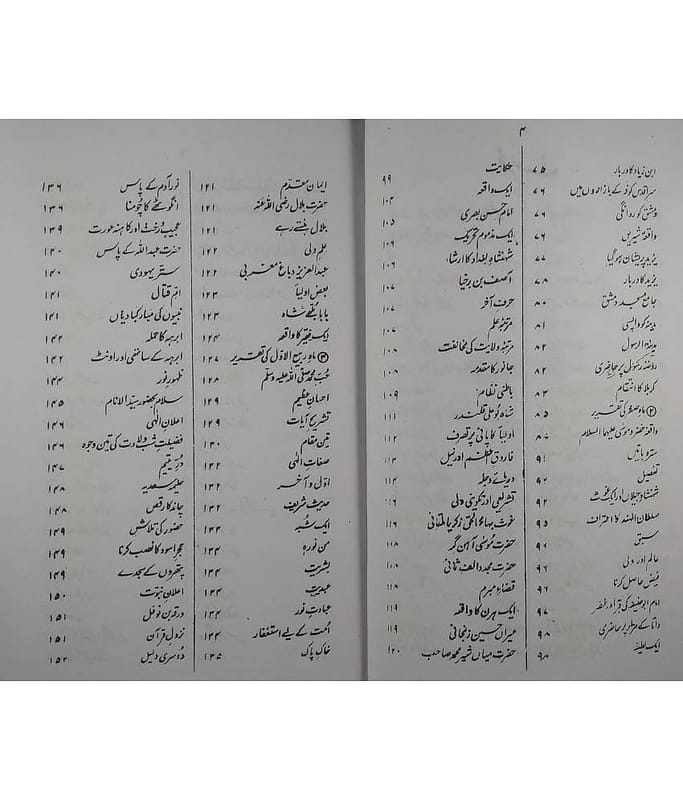 ۴
ابن زیاد کا دربار ۷۵
سر اقدس کوفہ کے بازاروں میں ۷۶
دمشق کو روانگی ۷۶
واقعہ شیریں ۷۶
یزید پریشان ہو گیا ۷۷
یزید کا دربار ۷۸
جامع مسجد دمشق ۸۰
مدینہ کو واپسی ۸۱
مدینۃ الرسول ۸۲
روضہ رسول پر حاضری ۸۲
کربلا کا انتقام ۸۳
② ماہ صفر کی تقریر ۸۵
واقعہ خضر و موسیٰ علیہما السلام
ستر باتیں
تفصیل ۹۲
شہنشاہ جیلاں اور ایک غوث ۹۲
سلطان الہند کا اعتراف ۹۵
سبق ۹۶
عالم اور ولی ۹۶
فیض حاصل کرنا ۹۶
امام ابو حنیفہ کی قبر اور خضر ۹۷
داتا کے مزار پر حاضری ۹۸
ایک لطیفہ ۹۸
حکایت ۹۹
ایک واقعہ ۱۰۴
امام حسن بصری ۱۰۵
ایک مذموم تحریک ۱۰۶
شہنشاہ بغداد کا ارشاد ۱۰۶
آصف بن برخیا ۱۰۷
حرف آخر ۱۰۷
مرتبۂ علم ۱۰۷
مرتبۂ ولایت کی مخالفت ۱۰۸
جانور کا مقدمہ ۱۰۸
باطنی نظام ۱۰۹
شاہ بو علی قلندر ۱۱۱
اولیاء کا پانی پر تصرف ۱۱۲
فاروق اعظم اور نیل ۱۱۳
دریائے دجلہ ۱۱۴
تشریعی اور تکوینی ولی ۱۱۶
غوث بہاء الحق زکریا ملتانی ۱۱۶
حضرت موسیٰ آہن گر ۱۱۸
حضرت مجدد الف ثانی ۱۱۸
قضاءِ مبرم ۱۱۸
ایک ہرن کا واقعہ ۱۱۹
میراں حسین زنجانی ۱۱۹
حضرت میاں شیر محمد صاحب ۱۲۰
ایمان مقدم ۱۲۱
حضرت بلال رضی اللہ عنہ ۱۲۱
بلال ہنستے رہے ۱۲۱
علم ولی ۱۲۲
عبد العزیز دباغ مغربی ۱۲۲
بعض اولیاء ۱۲۳
بابا بلھے شاہ ۱۲۳
ایک فقیر کا واقعہ ۱۲۴
③ ماہ ربیع الاول کی تقریر ۱۲۷
حب محمد صلی اللہ علیہ وسلم ۱۲۸
احسان عظیم ۱۲۹
تشریح آیات ۱۲۹
تین مقام ۱۳۰
صفات الٰہی ۱۳۲
اول و آخر ۱۳۲
حدیث شریف ۱۳۲
ایک شبہ ۱۳۳
من نورہ ۱۳۴
بشریت ۱۳۴
عبدیت ۱۳۴
عبادت نور ۱۳۴
امت کے لیے استغفار ۱۳۴
خاک پاک ۱۳۵
نور آدم کے پاس ۱۳۶
انگوٹھے کا چومنا ۱۳۶
عجیب درخت اور کاہنہ عورت ۱۳۹
حضرت عبد اللہ کے پاس ۱۴۰
ستر یہودی ۱۴۰
ام قتال ۱۴۱
نبیوں کی مبارکبادیاں ۱۴۱
ابرہہ کا حملہ ۱۴۲
ابرہہ کے ساتھی اور اونٹ ۱۴۲
ظہور نور ۱۴۴
سلام بحضور سید الانام ۱۴۵
اعلان الٰہی ۱۴۶
فضیلت شب ولادت کی تین وجوہ ۱۴۶
در یتیم ۱۴۷
حلیمہ سعدیہ ۱۴۸
چاند کا رقص ۱۴۸
حضور کی تلاش ۱۴۹
حجر اسود کا نصب کرنا ۱۴۹
پتھروں کے سجدے ۱۴۹
اعلان نبوت ۱۵۰
ورقہ بن نوفل ۱۵۱
نزول قرآن ۱۵۱
دوسری دلیل ۱۵۲